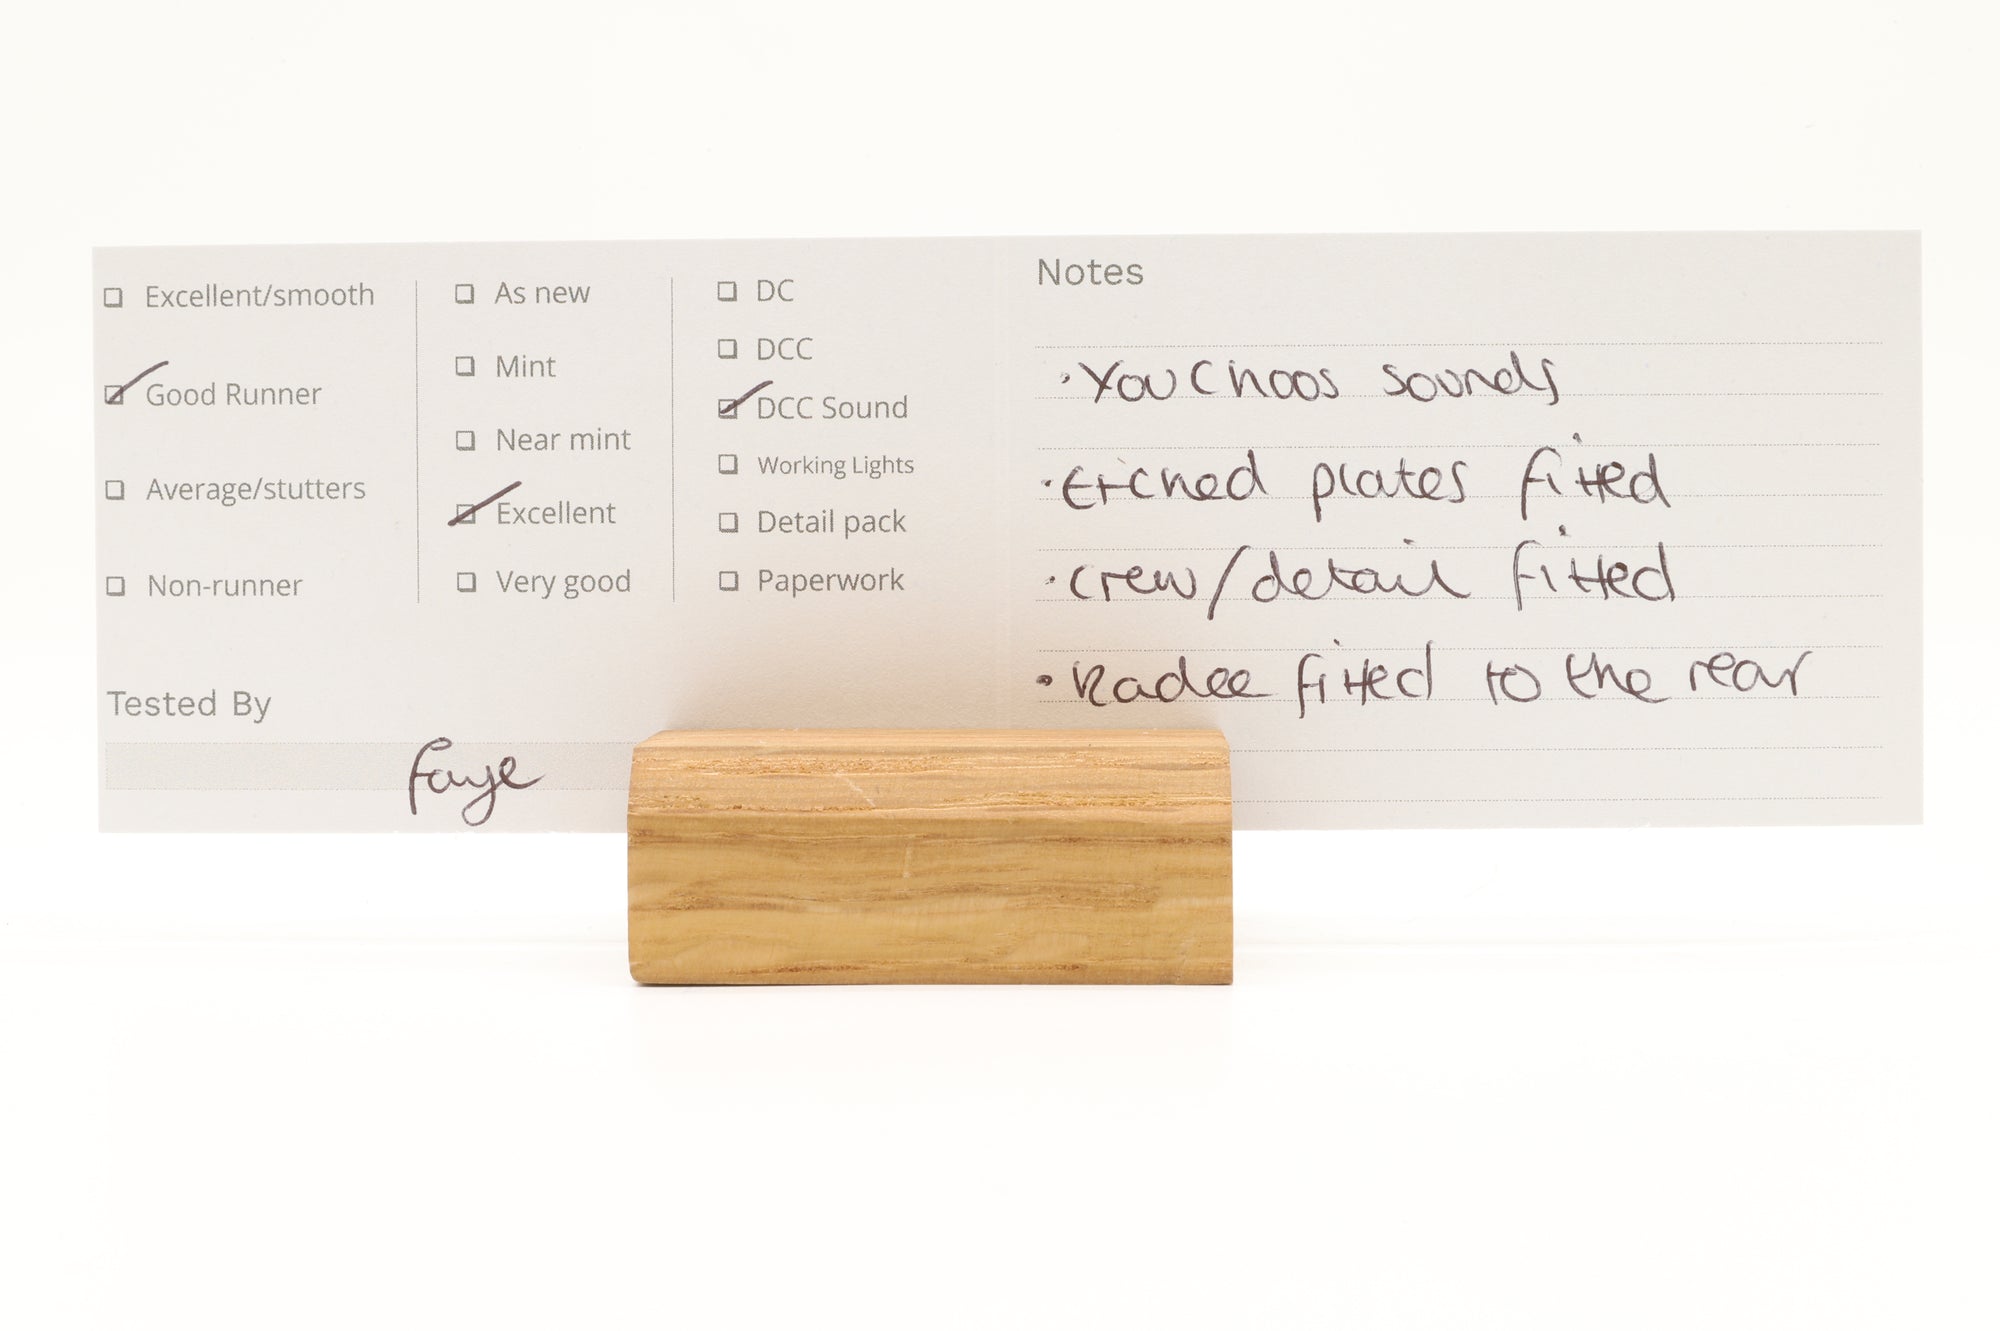 ☐ Excellent/smooth
☑ Good Runner
☐ Average/stutters
☐ Non-runner
☐ As new
☐ Mint
☐ Near mint
☑ Excellent
☐ Very good
☐ DC
☐ DCC
☑ DCC Sound
☐ Working Lights
☐ Detail pack
☐ Paperwork
Tested By
Faye
Notes
· YouChoos sounds
· Etched plates fitted
· Crew/detail fitted
· Kadee fitted to the rear